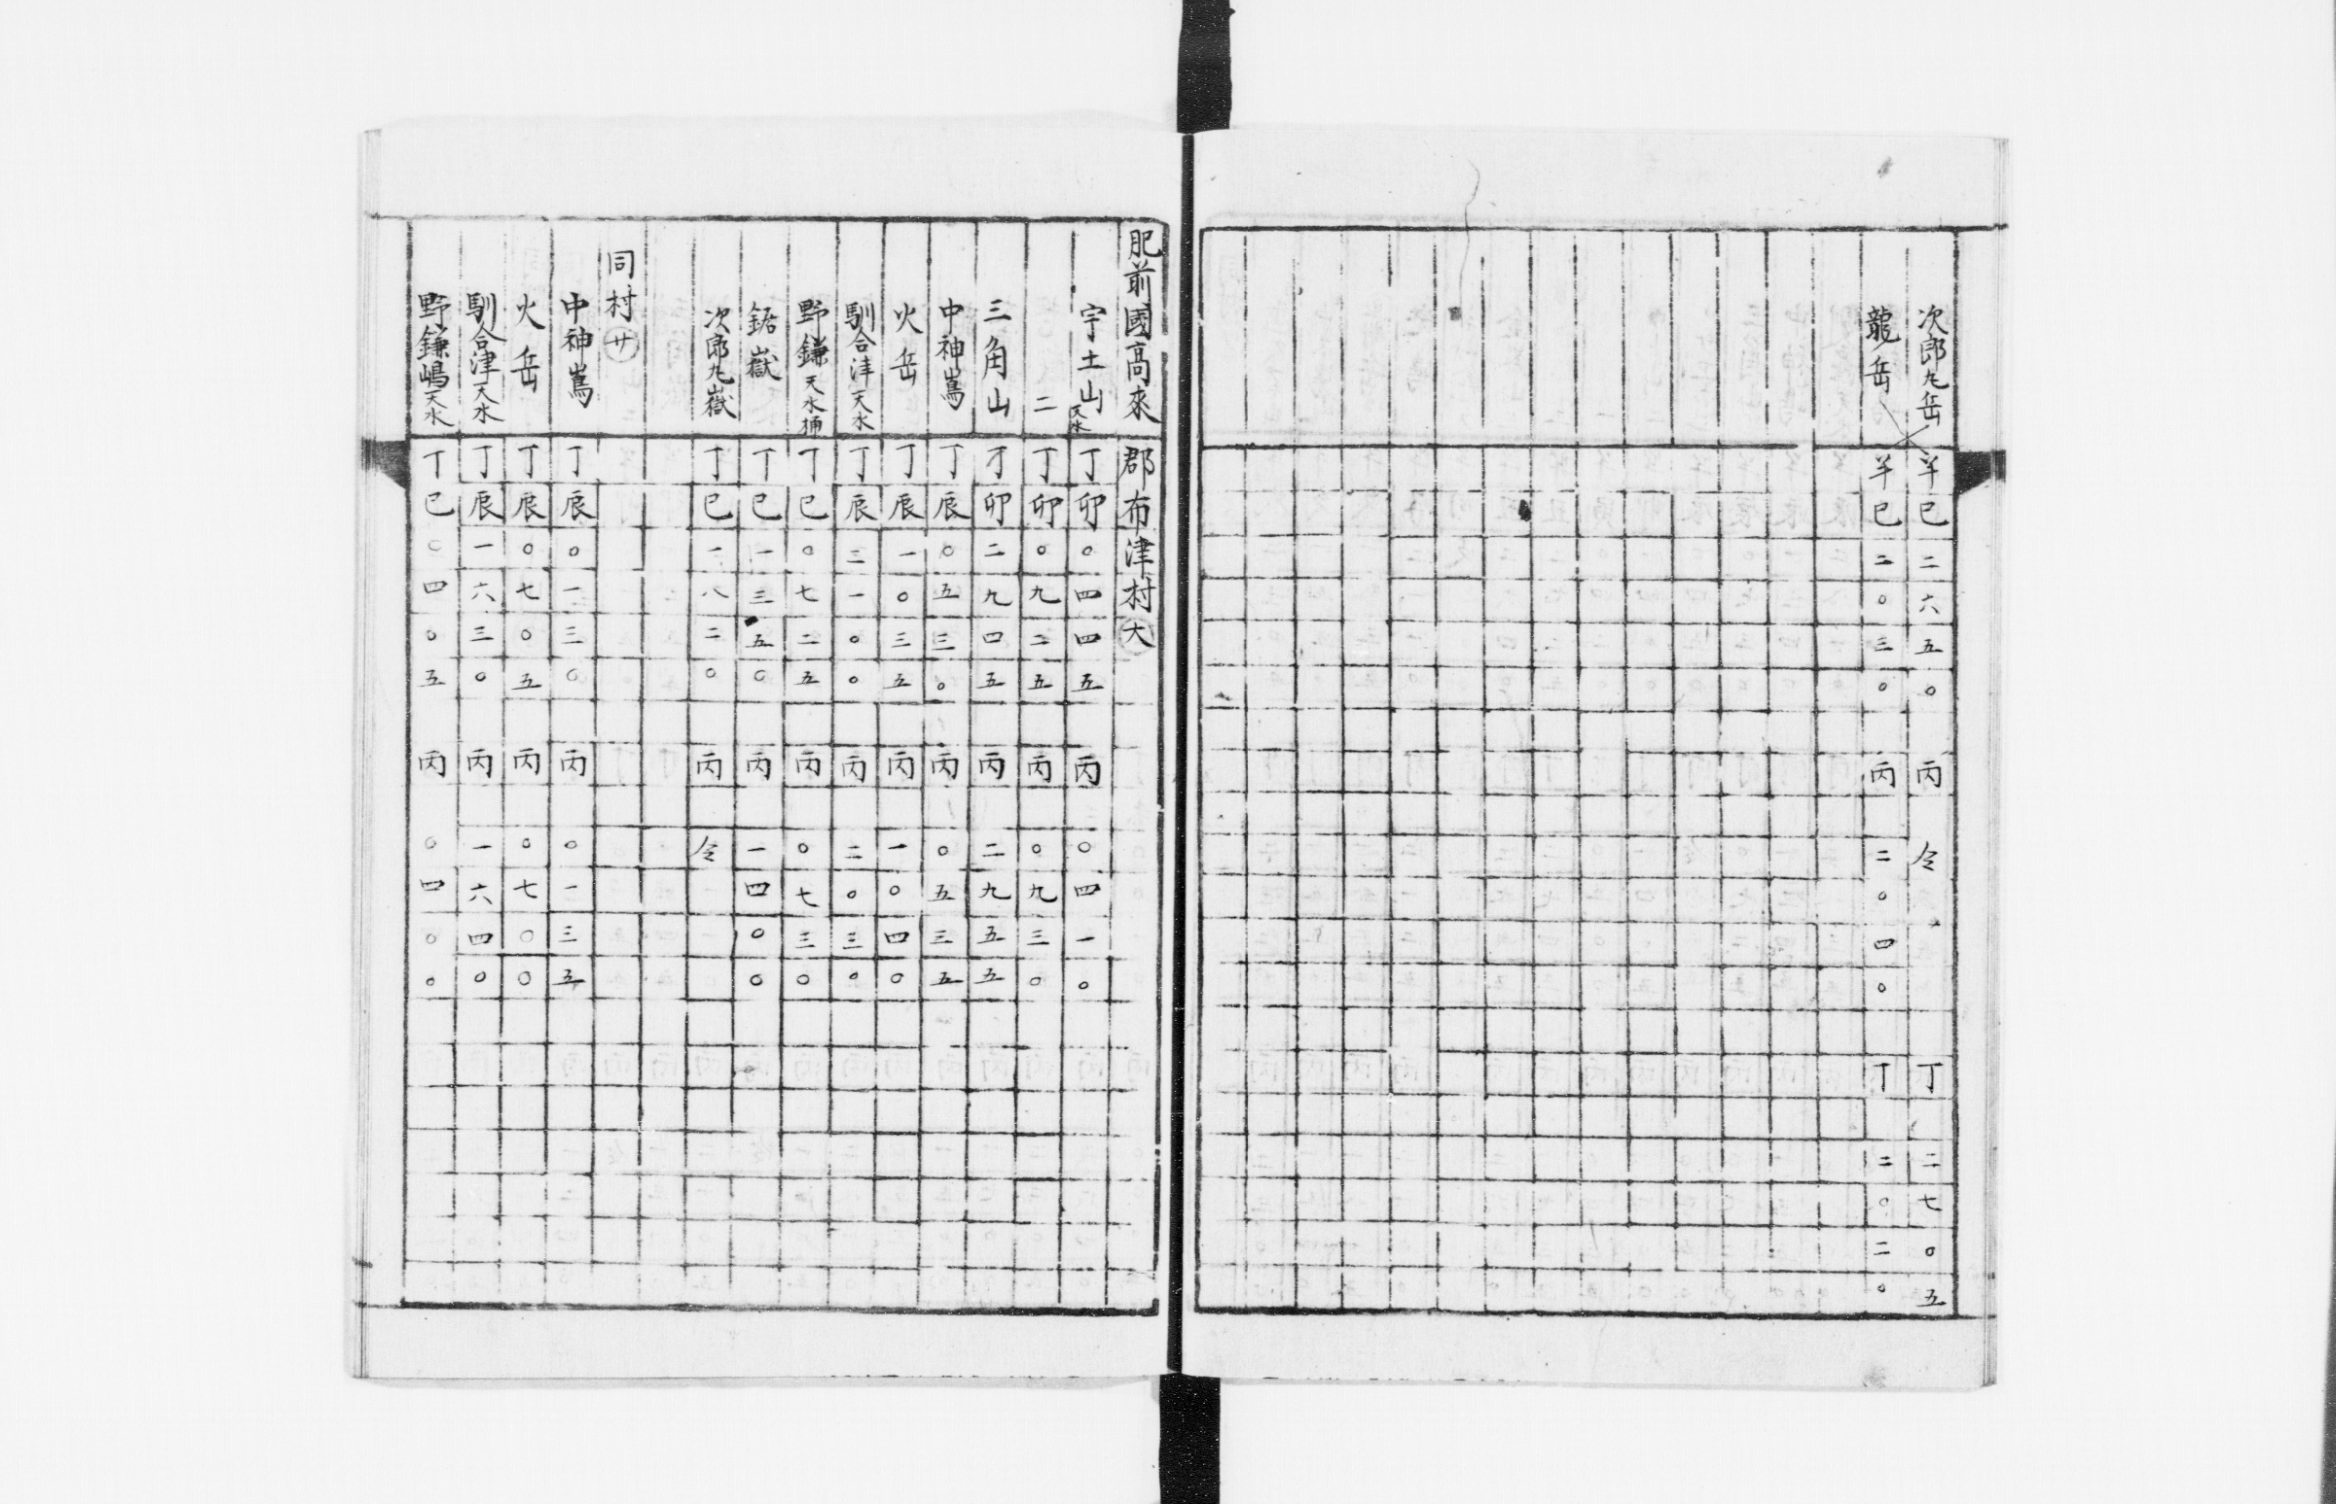 次郎丸岳 羊巳二六五〇 丙 仝 丁 二七〇五
龍岳 羊巳二〇三〇 丙 二〇四〇 丁 二〇二〇
肥前國高來郡布津村 大
宇土山 天水 丁卯〇四四五 丙 〇四一〇
二 丁卯〇九二五 丙 〇九三〇
三角山 丁卯二九四五 丙 二九五五
中神嶌 丁辰〇五三〇 丙 〇五三五
火岳 丁辰一〇三五 丙 一〇四〇
馴合津 天水 丁辰二一〇〇 丙 二〇三〇
野鎌 天水桶 丁巳〇七二五 丙 〇七三〇
鋸嶽 丁巳一三五〇 丙 一四〇〇
次郎丸嶽 丁巳一八二〇 丙 仝
同村 サ
中神嶌 丁辰〇一三〇 丙 〇一三五
火岳 丁辰〇七〇五 丙 〇七〇〇
馴合津 天水 丁辰一六三〇 丙 一六四〇
野鎌嶋 天水 丁巳〇四〇五 丙 〇四〇〇